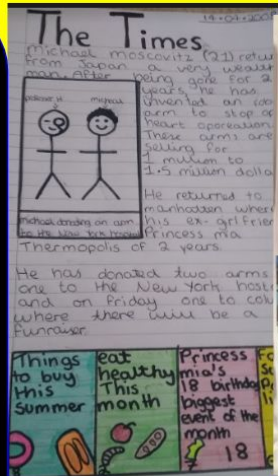 14-04-200
The Times
michael moscovitz (21) retur
from Japan a very wealt
man. After being gone for 2
years he has
invented an rob
arm to stop op
heart oporeation
These arms are
selling for
1 million to
1.5 million dolla
michael
michael donating an arm
to the New York hospital
He returned to
manhadden wher
his ex-girlfrier
Princess mia
Thermopolis of 2 years.
He has donated two arms
one to the New York host
and on friday one to col
where there will be a
funraiser.
Things
to buy
this
summer
eat
healthy
This
month
Princess
mia's
18 birthday
biggest
event of the
month
18